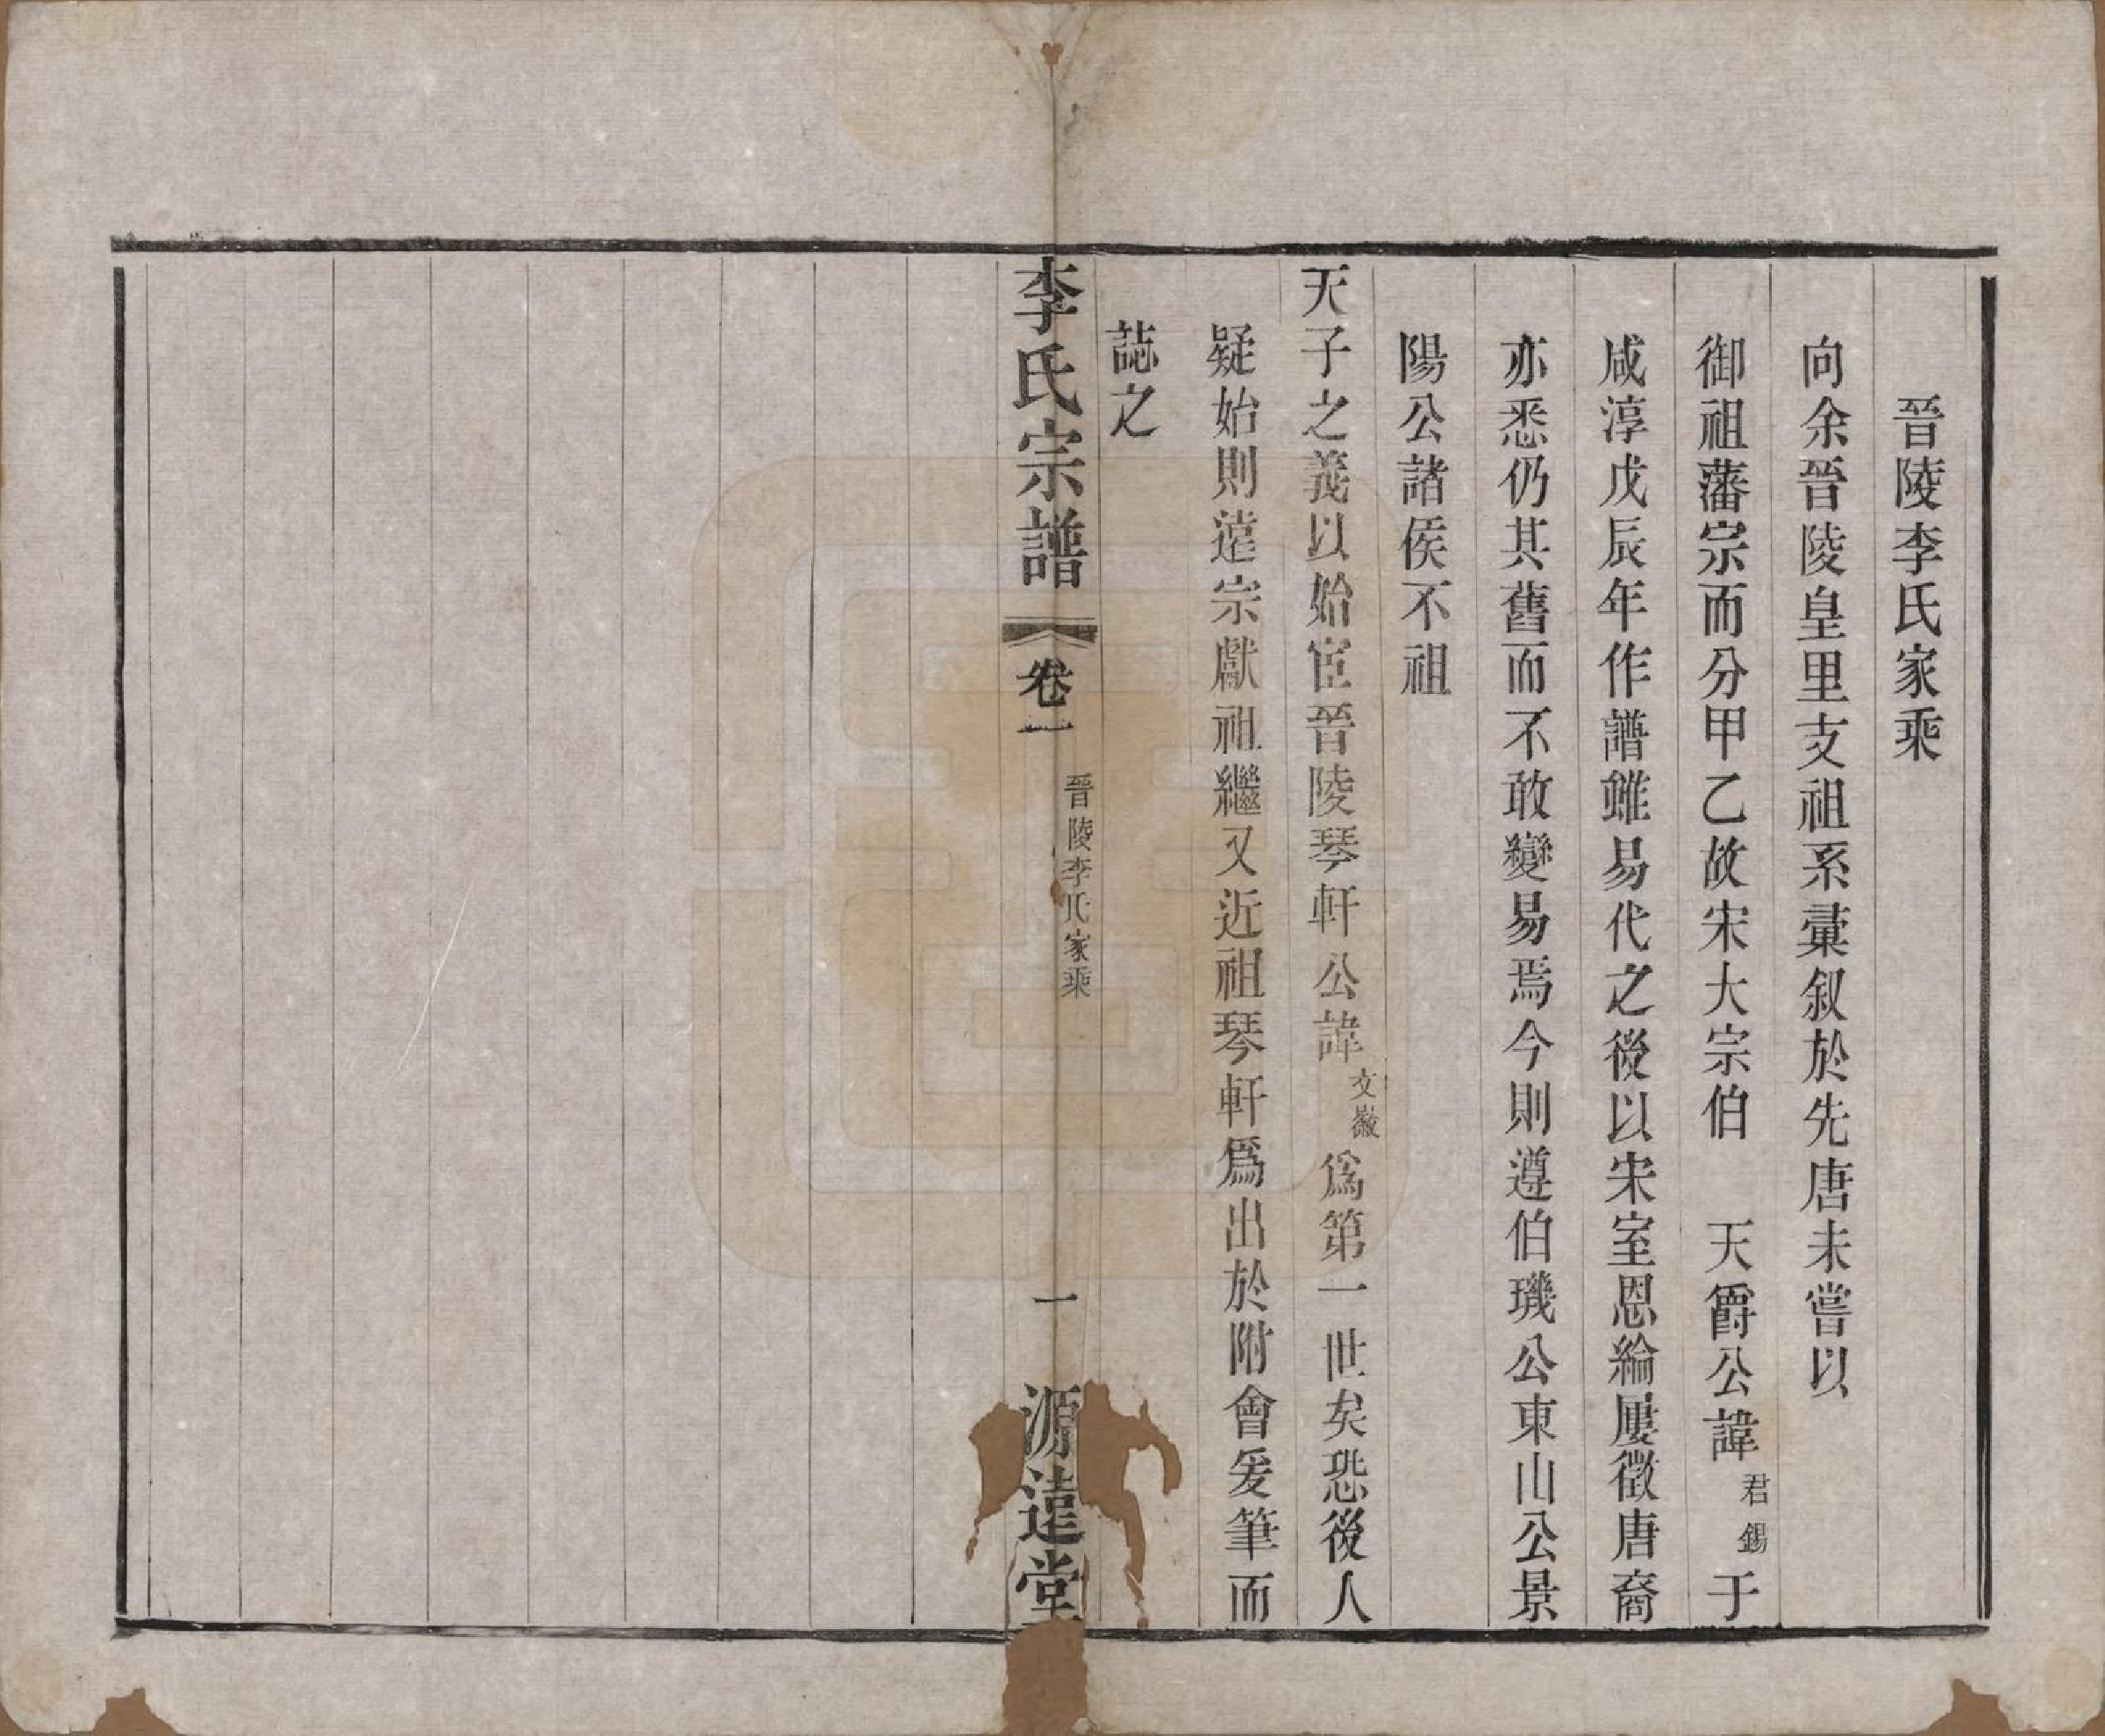 晉陵李氏家乘
向余晉陵皇里支祖系彙叙於先唐未嘗以
御祖藩宗而分甲乙故宋大宗伯　天爵公諱君錫于
咸淳戊辰年作譜雖易代之後以宋室恩綸屢徵唐裔
亦悉仍其舊而不敢變易焉今則遵伯璣公東山公景
陽公諸侯不祖
天子之義以始宦晉陵琴軒公諱文徽為第一世矣恐後人
疑始則遠宗獻祖繼又近祖琴軒爲出於附會爰筆而
誌之
李氏宗譜　卷一　晉陵李氏家乘　一　源遠堂